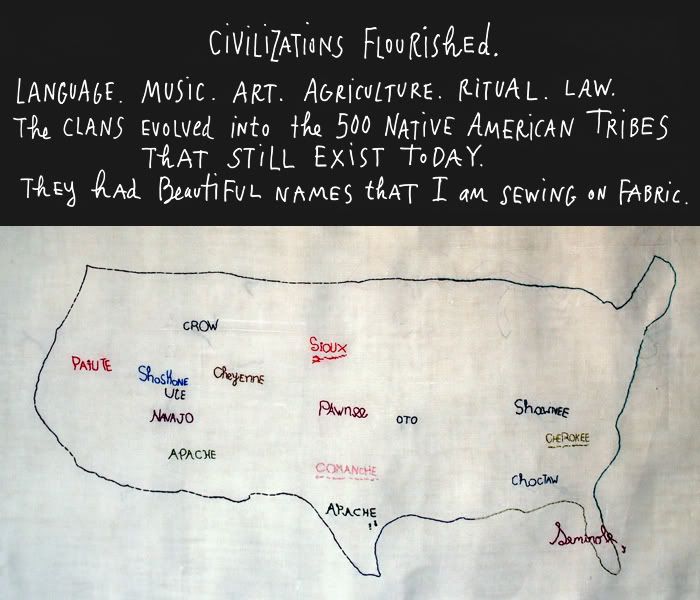 CIVILIZATIONS FLOURISHED.
LANGUAGE. MUSIC. ART. AGRICULTURE. RITUAL. LAW.
The CLANS EVOLVED INTO the 500 NATIVE AMERICAN TRIBES
THAT STILL EXIST TODAY.
They had BEAUTIFUL NAMES that I am SEWING ON FABRIC.
CROW
SIOUX
PAIUTE
ShosHONE
Cheyenne
UTE
NAVAJO
PAwnee
OTO
ShawNEE
CHEROKEE
APACHE
COMANCHE
ChoCTAW
APACHE
Seminole